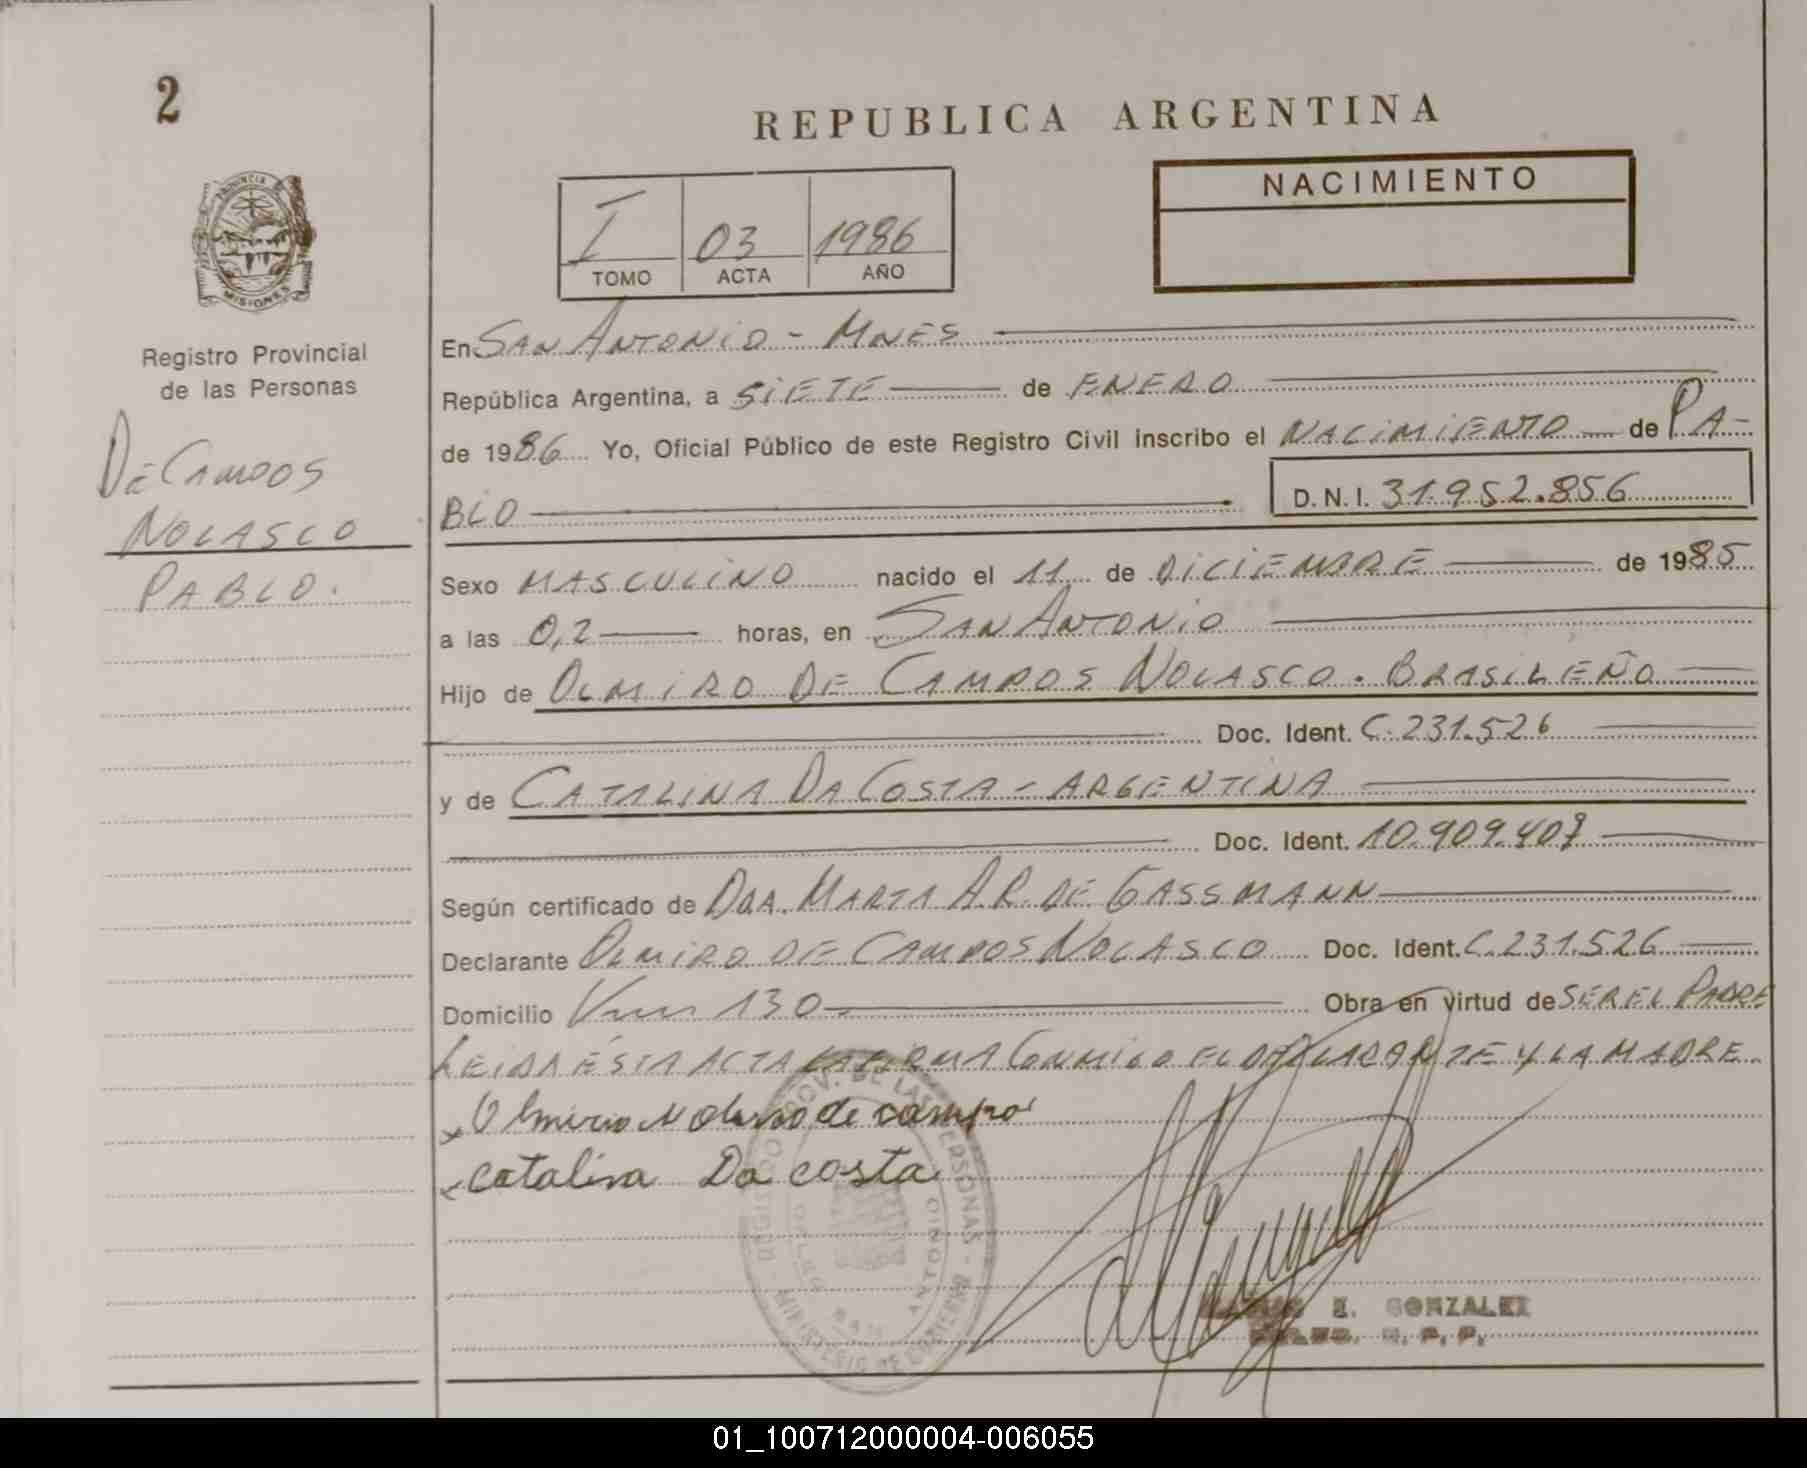 2
REPUBLICA ARGENTINA
NACIMIENTO
I 03 1986
TOMO ACTA AÑO
PROVINCIA DE
MISIONES
Registro Provincial
de las Personas
DE CAMPOS
NOLASCO
PABLO.
En SAN ANTONIO - MNES
República Argentina, a SIETE de ENERO
de 1986 Yo, Oficial Público de este Registro Civil inscribo el NACIMIENTO de PA-
BLO D.N.I. 31.952.856
Sexo MASCULINO nacido el 11 de DICIEMBRE de 1985
a las 0,2 horas, en SAN ANTONIO
Hijo de OLMIRO DE CAMPOS NOLASCO. BRASILEÑO
Doc. Ident. C.231.526
y de CATALINA DA COSTA - ARGENTINA
Doc. Ident. 10.909.407
Según certificado de DRA. MARTA A.R. DE GASSMANN
Declarante OLMIRO DE CAMPOS NOLASCO Doc. Ident. C.231.526
Domicilio Km 130 Obra en virtud de SER EL PADRE
LEIDA ÉSTA ACTA LA FIRMA CONMIGO EL DECLARANTE Y LA MADRE.
x Olmiro Nolasco de campo
x catalina Da costa
REGISTRO PROV. DE LAS PERSONAS - MINISTERIO DE GOBIERNO
ANTONIO
E. GONZALEZ
R. P. P.
01_100712000004-006055